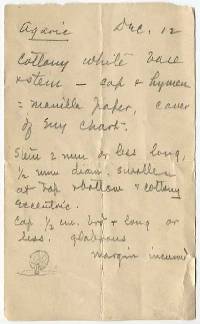 Agaric Dec. 12
Cottony white base
& stem — cap & hymen
= manilla paper, cover
of my chart.
Stem 2 mm or less long,
1/2 mm diam. swollen
at top & bottom & cottony
eccentric.
Cap 1/2 cm. broad & long or
less. glabrous
margin incurved